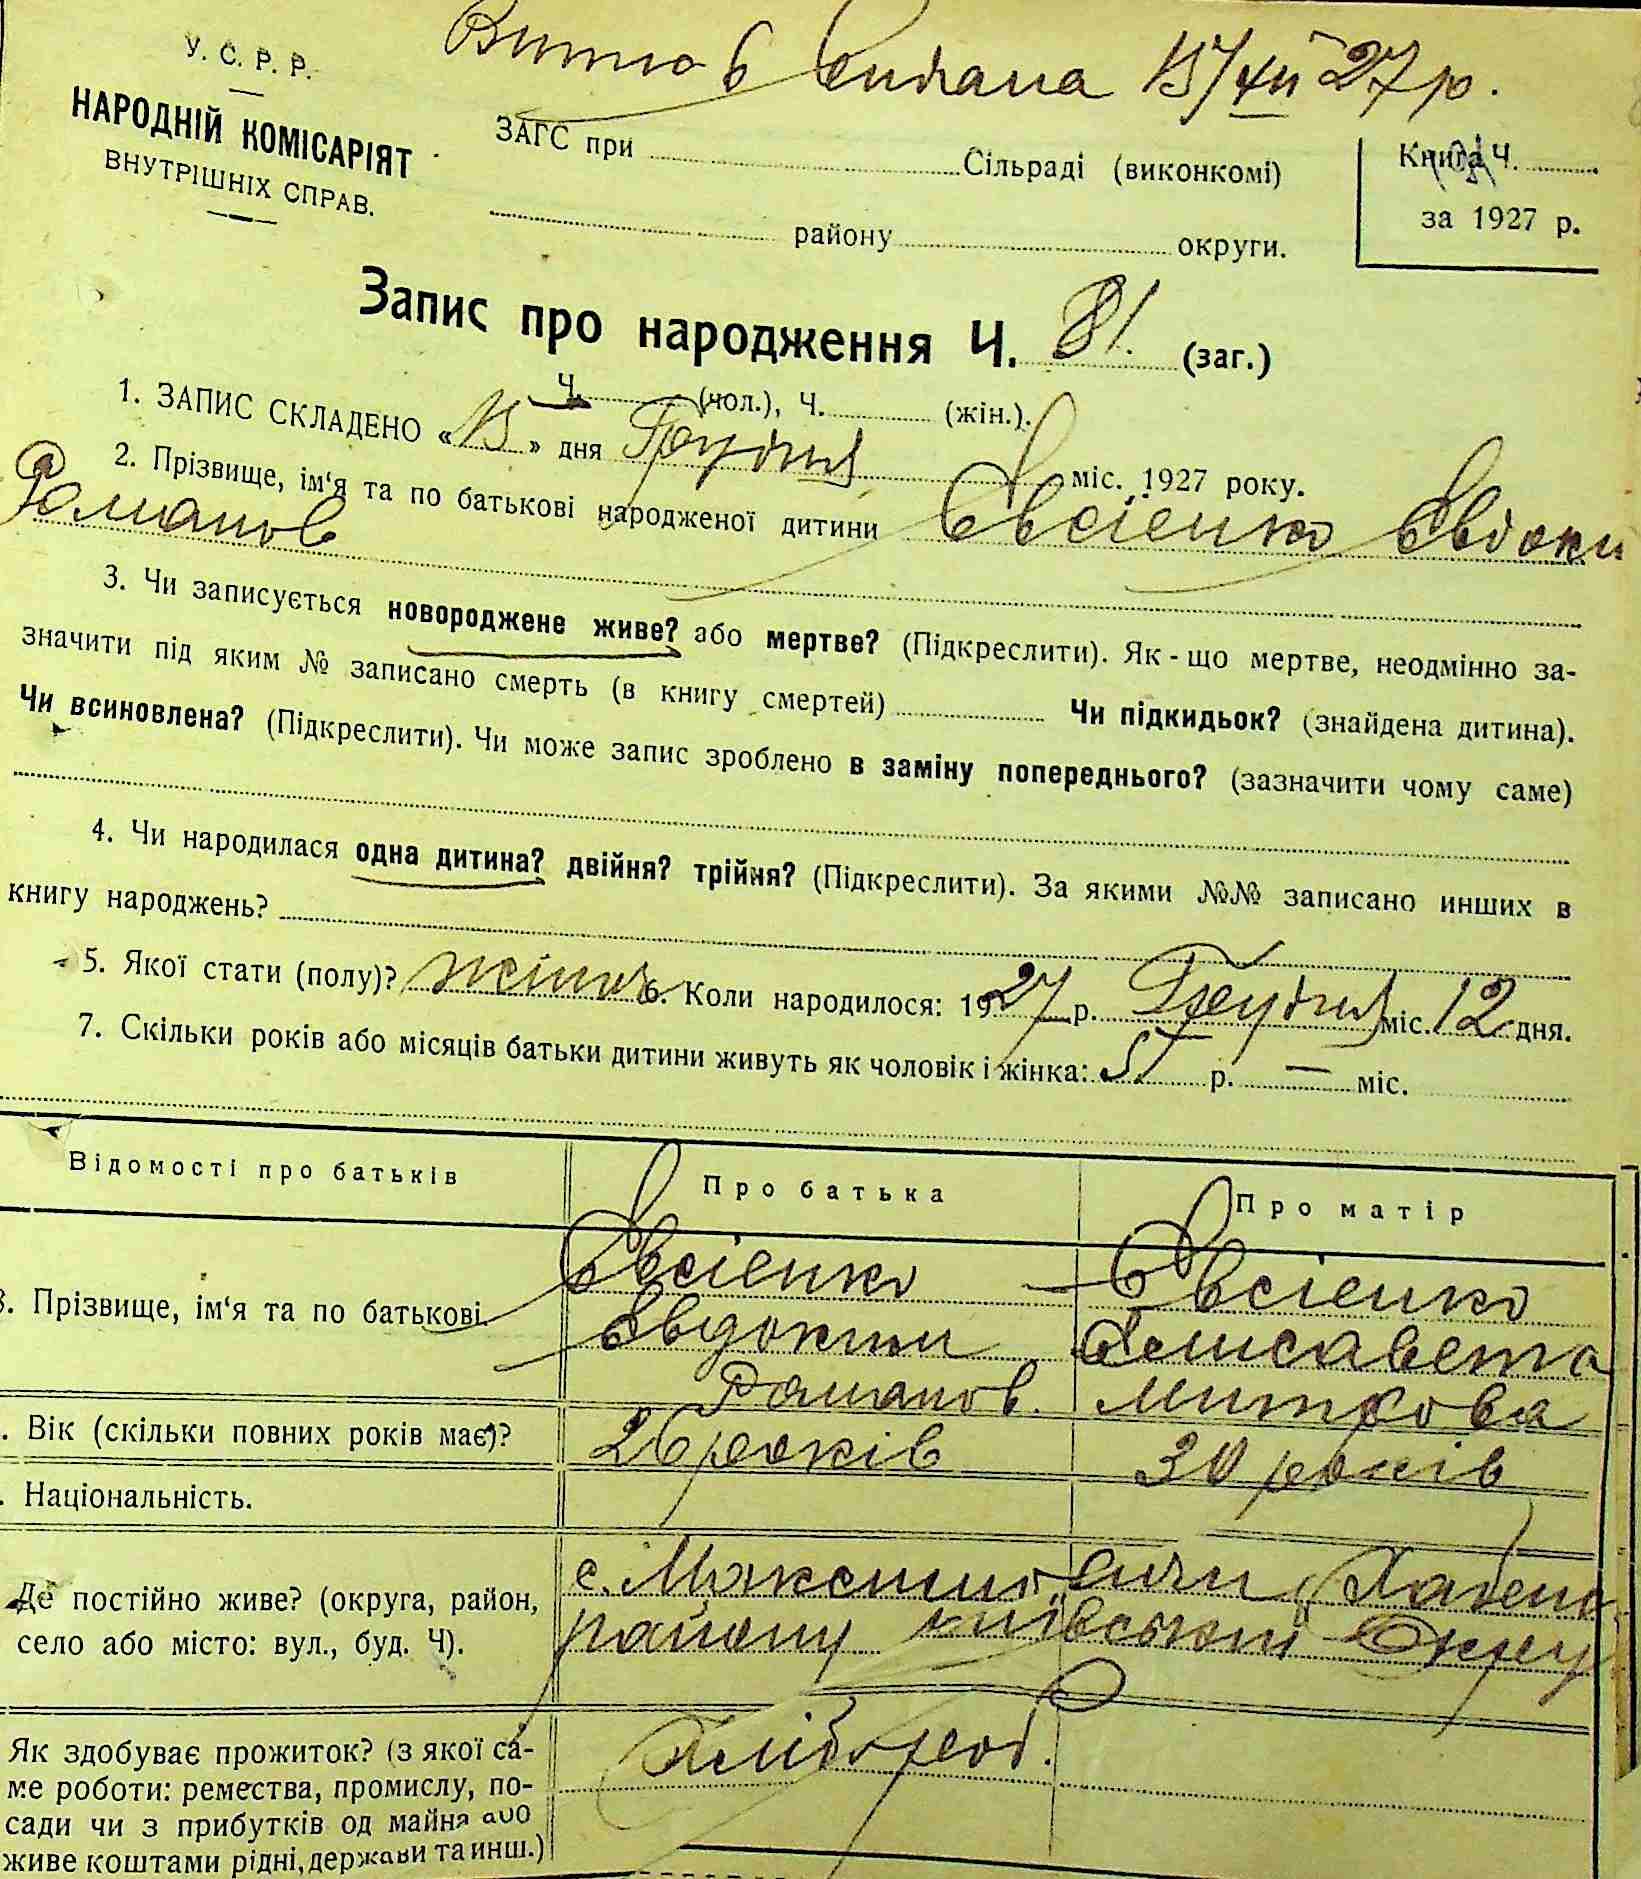 27 р.
У. С. Р. Р.
НАРОДНІЙ КОМІСАРІЯТ
ВНУТРІШНІХ СПРАВ.
ЗАГС при Сільраді (виконкомі)
району округи.
Книга Ч.
за 1927 р.
Запис про народження Ч. 81. (заг.)
Ч. (чол.), Ч. (жін.).
1. ЗАПИС СКЛАДЕНО «15» дня Грудня міс. 1927 року.
2. Прізвище, ім'я та по батькові народженої дитини Євсієнко Євдоки
Романов
3. Чи записується новороджене живе? або мертве? (Підкреслити). Як-що мертве, неодмінно за-
значити під яким № записано смерть (в книгу смертей) Чи підкидьок? (знайдена дитина).
Чи всиновлена? (Підкреслити). Чи може запис зроблено в заміну попереднього? (зазначити чому саме)
4. Чи народилася одна дитина? двійня? трійня? (Підкреслити). За якими №№ записано инших в
книгу народжень?
5. Якої стати (полу)? жіноч 6. Коли народилося: 1927 р. Грудня міс. 12 дня.
7. Скільки років або місяців батьки дитини живуть як чоловік і жінка: 5 р. — міс.
Відомості про батьків
Про батька
Про матір
8. Прізвище, ім'я та по батькові.
Євсієнко
Євдоким
Романов.
Євсієнко
Єлисавета
Миткова
. Вік (скільки повних років має)?
26 років
30 років
. Національність.
Де постійно живе? (округа, район,
село або місто: вул., буд. Ч).
с. Максимовичи Хабенс
району Київської Округ
Як здобуває прожиток? (з якої са-
ме роботи: ремества, промислу, по-
сади чи з прибутків од майна або
живе коштами рідні, держави та инш.)
Хлібороб.